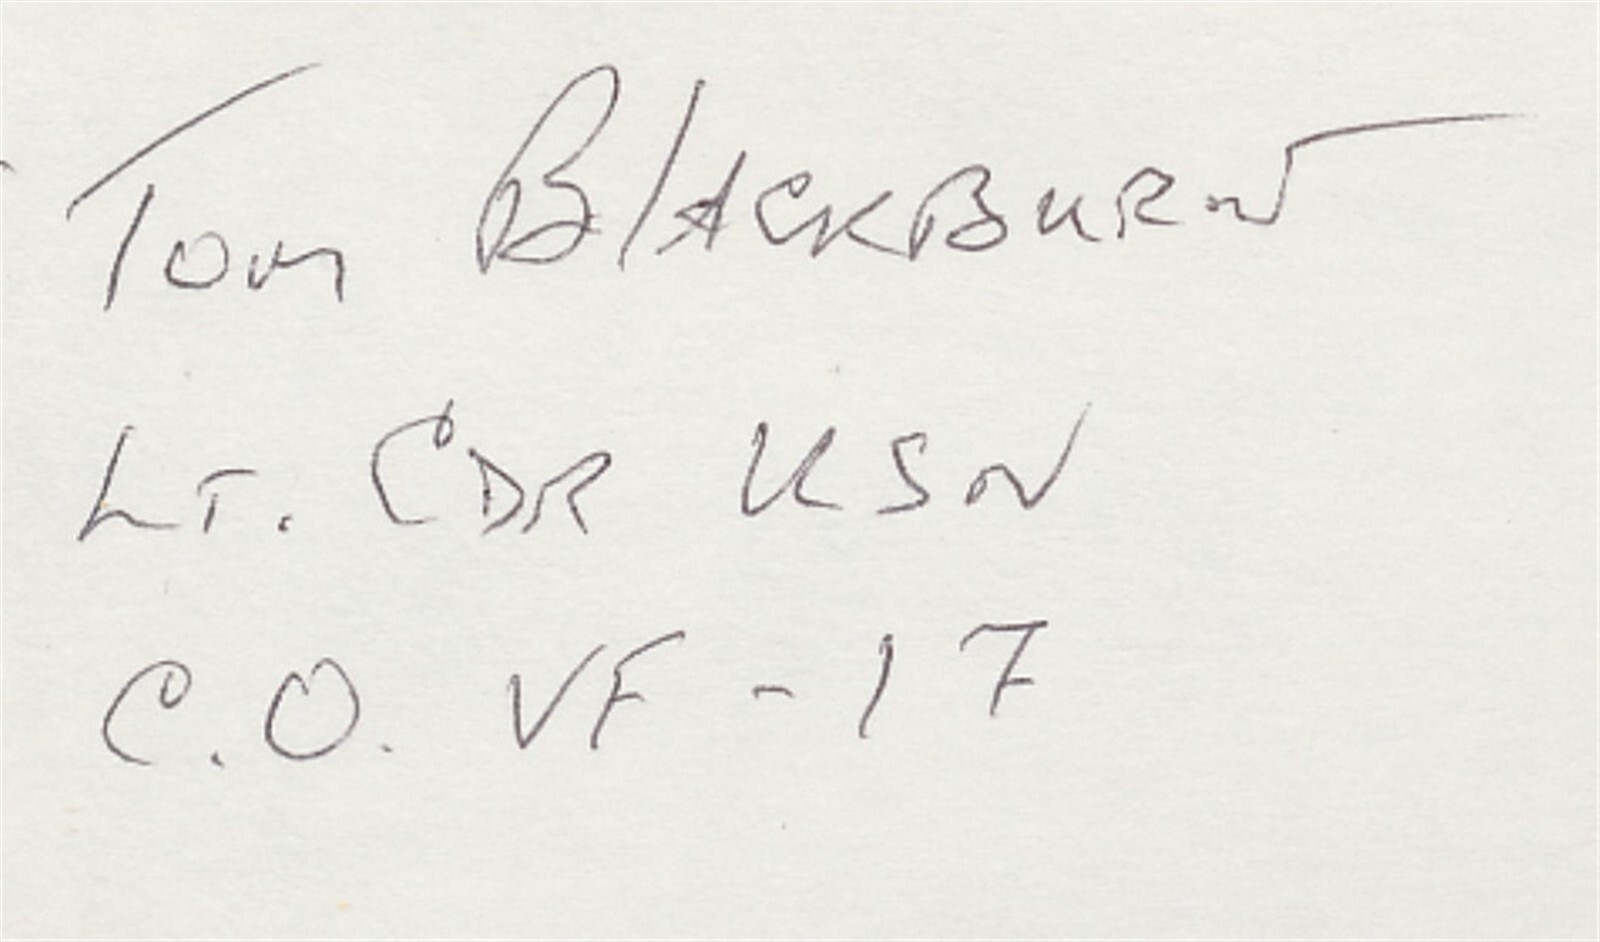 Tom BlackBURN
LT. CDR USN
C.O. VF-17